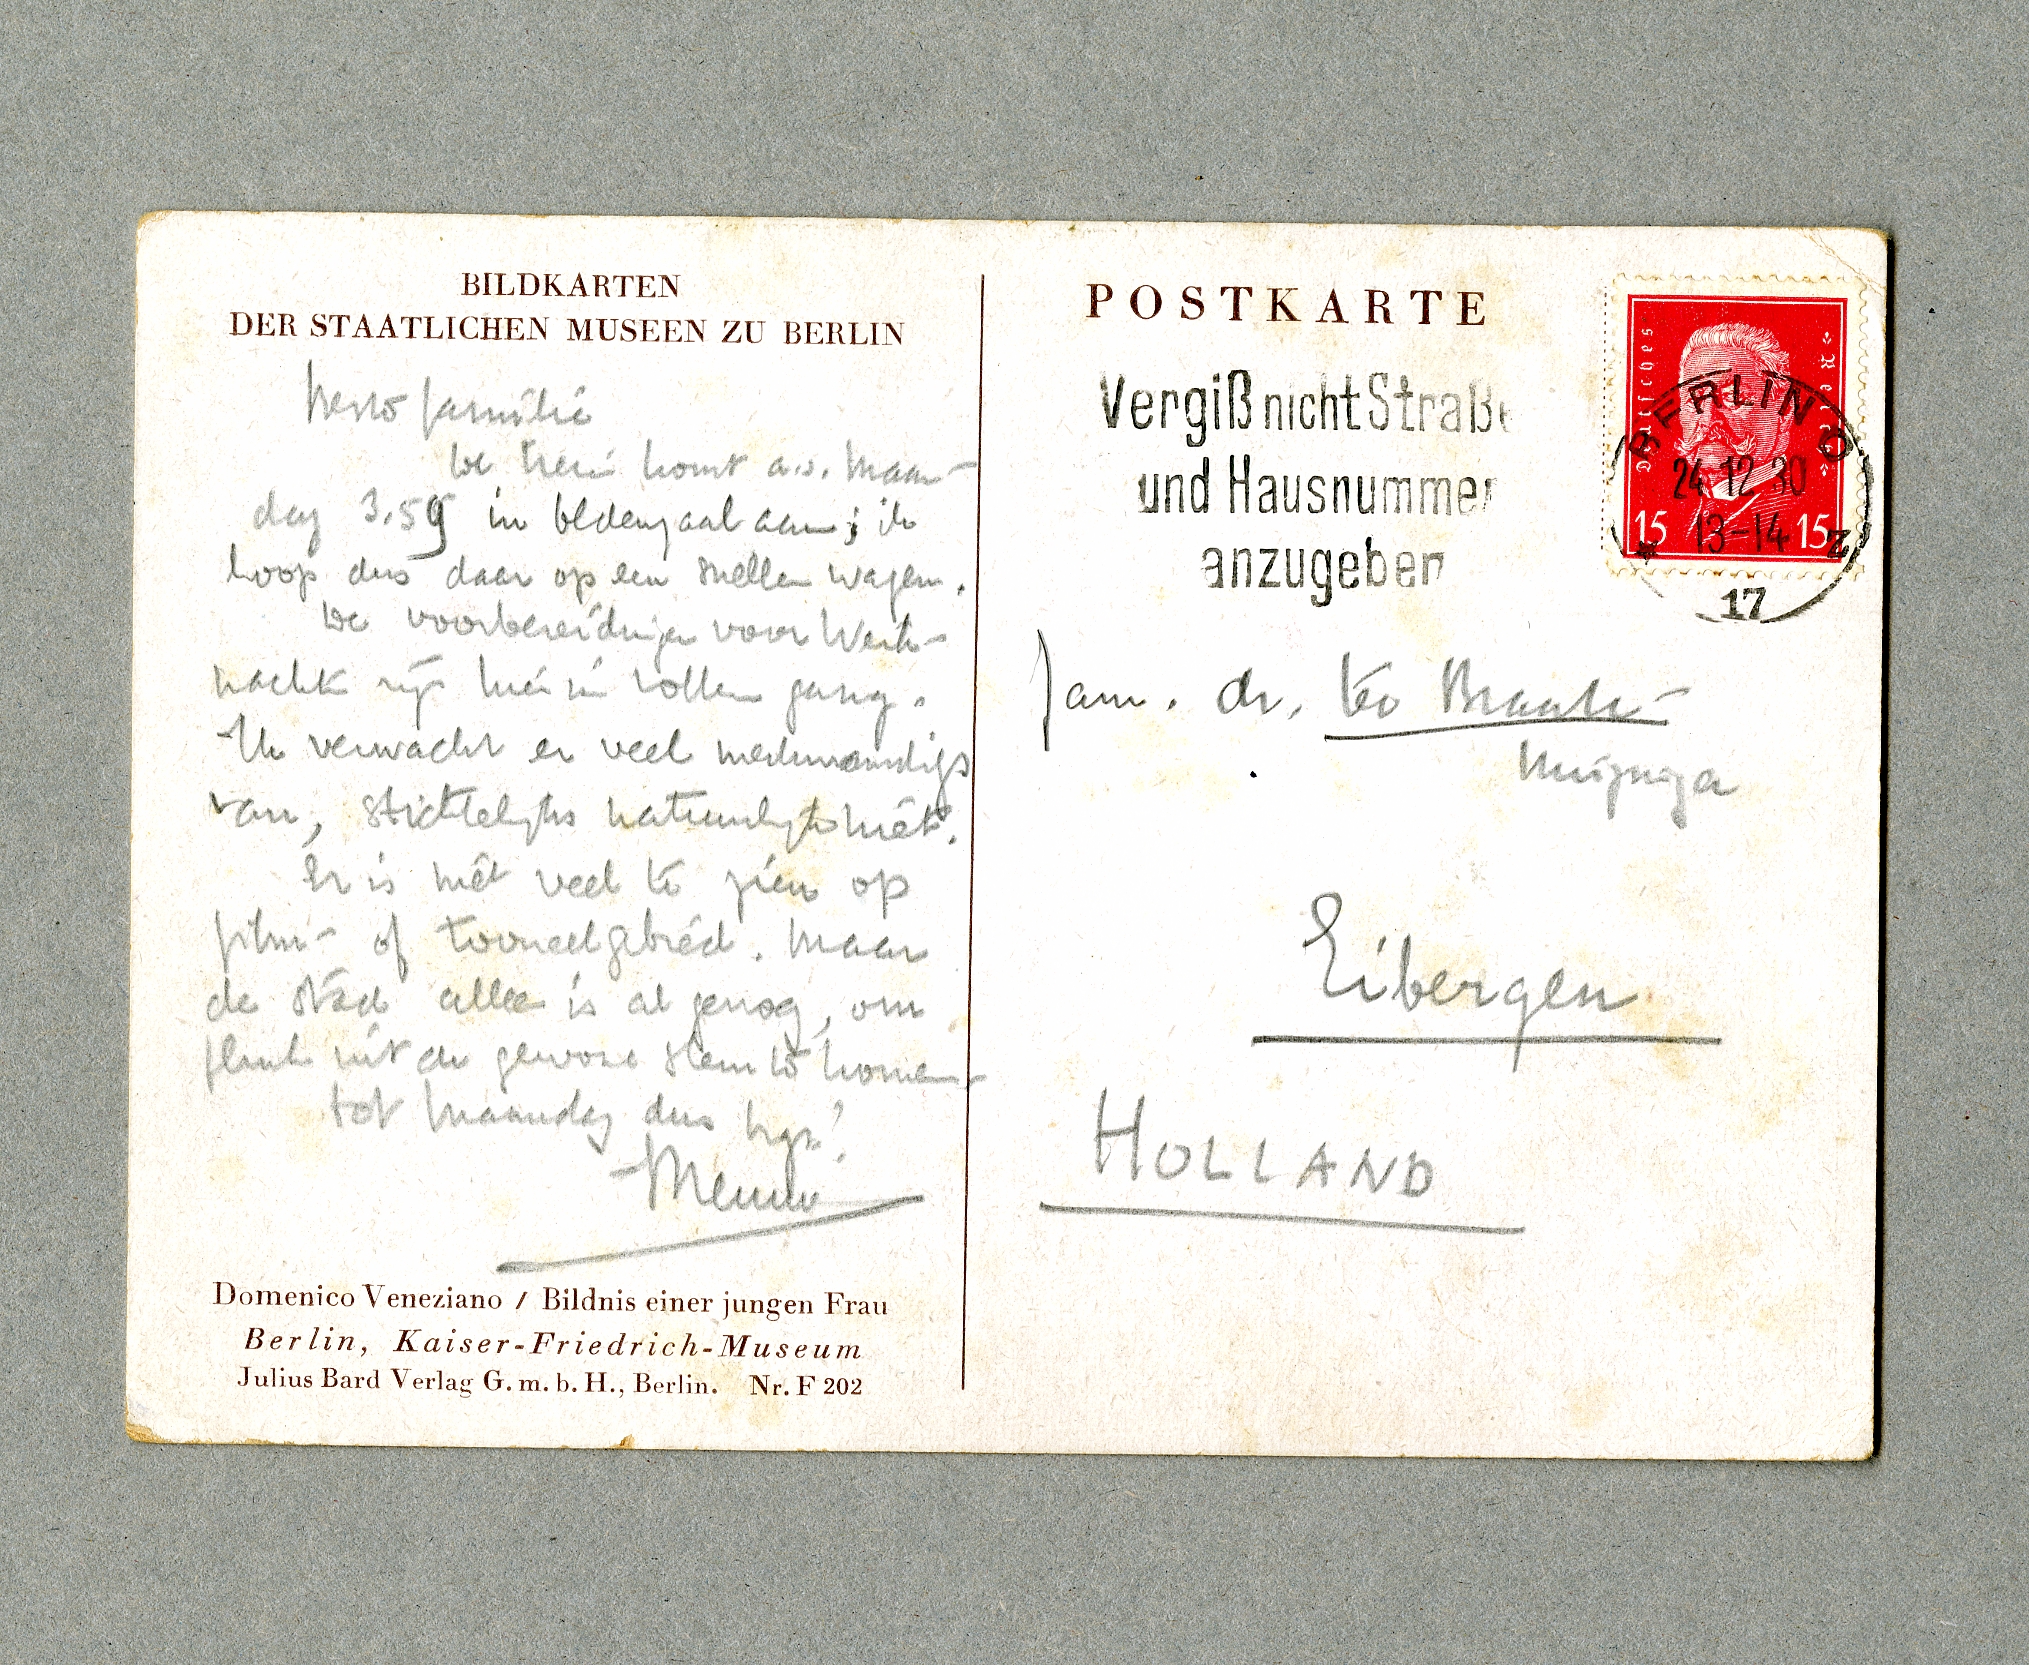 BILDKARTEN
DER STAATLICHEN MUSEEN ZU BERLIN
familie
De trein komt a.s. Maan-
dag 3.59 in Oldenzaal aan; ik
hoop dus daar op een snellen wagen.
De voorbereidingen voor Weih-
nachten zijn hier in vollen gang.
Ik verwacht er veel merkwaardigs
van, stichtelijks natuurlijk niet.
Er is niet veel te zien op
film- of tooneelgebied. Maar
de stad alleen is al genoeg, om
flink uit de gewone sleur te komen.
Tot Maandag dus
Menno
Domenico Veneziano / Bildnis einer jungen Frau
Berlin, Kaiser-Friedrich-Museum
Julius Bard Verlag G.m.b.H., Berlin. Nr. F 202
POSTKARTE
Vergiß nicht Straße
und Hausnummer
anzugeben
Deutsches Reich
15 15
BERLIN O
24.12.30
13-14
* 17 z
Fam. dr. ter Braak-
Huizinga
Eibergen
HOLLAND